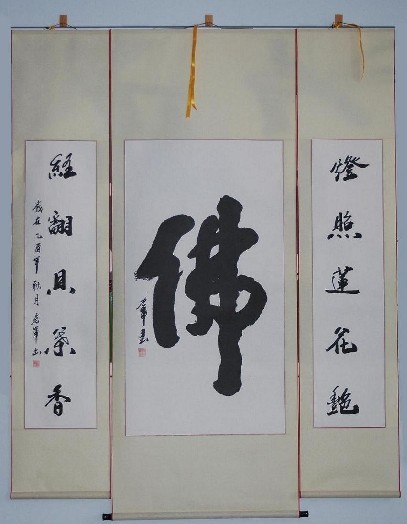 燈照蓮花艷
佛
經翻貝葉香
歲在乙酉年秋月